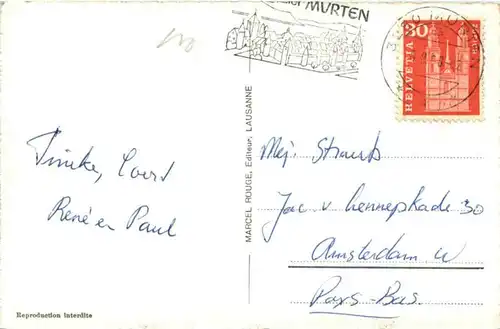 MURTEN
HELVETIA 30
Tineke, Coert
René en Paul
MARCEL ROUGE, Editeur, LAUSANNE
Mej. Straub
Jac. v Lennepkade 30
Amsterdam W
Pays-Bas.
Reproduction interdite